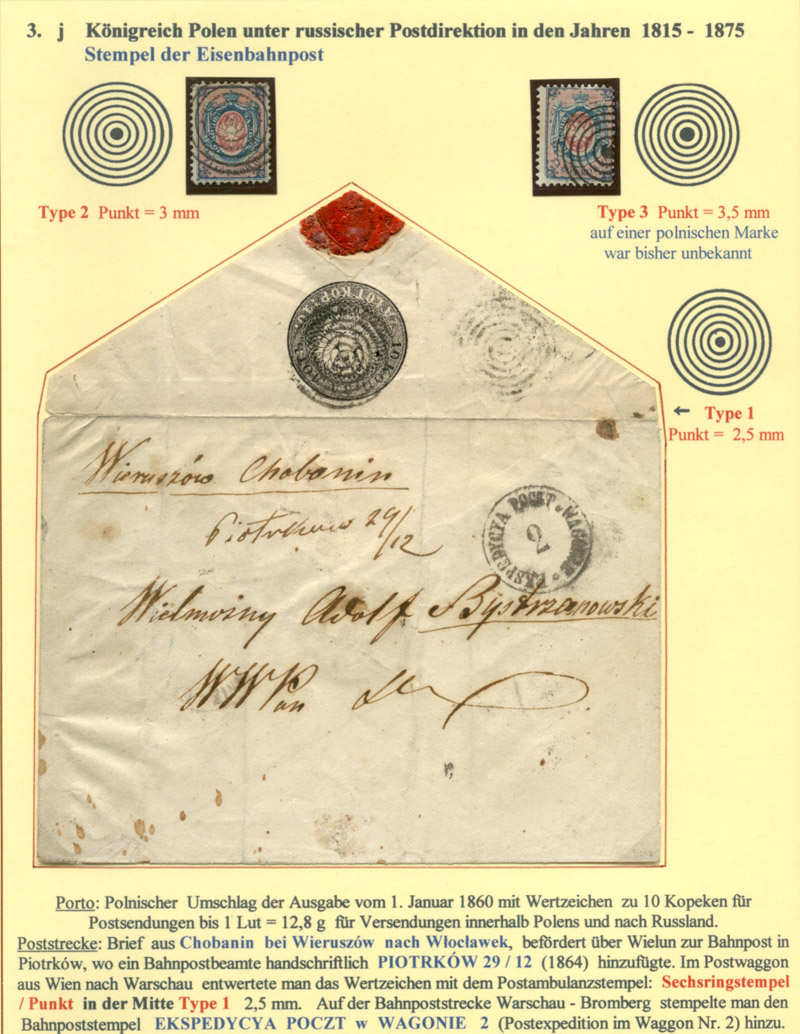 3. j Königreich Polen unter russischer Postdirektion in den Jahren 1815 - 1875
Stempel der Eisenbahnpost
Type 2 Punkt = 3 mm
Type 3 Punkt = 3,5 mm
auf einer polnischen Marke
war bisher unbekannt
← Type 1
Punkt = 2,5 mm
Wieruszów Chobanin
Piotrkow 29/12
EKSPEDYCYA POCZT W WAGONIE
2
Wielmożny Adolf Bystrzanowski
WW Pan
Porto: Polnischer Umschlag der Ausgabe vom 1. Januar 1860 mit Wertzeichen zu 10 Kopeken für
Postsendungen bis 1 Lut = 12,8 g für Versendungen innerhalb Polens und nach Russland.
Poststrecke: Brief aus Chobanin bei Wieruszów nach Włocławek, befördert über Wielun zur Bahnpost in
Piotrków, wo ein Bahnpostbeamte handschriftlich PIOTRKÓW 29 / 12 (1864) hinzufügte. Im Postwaggon
aus Wien nach Warschau entwertete man das Wertzeichen mit dem Postambulanzstempel: Sechsringstempel
/ Punkt in der Mitte Type 1 2,5 mm. Auf der Bahnpoststrecke Warschau - Bromberg stempelte man den
Bahnpoststempel EKSPEDYCYA POCZT w WAGONIE 2 (Postexpedition im Waggon Nr. 2) hinzu.